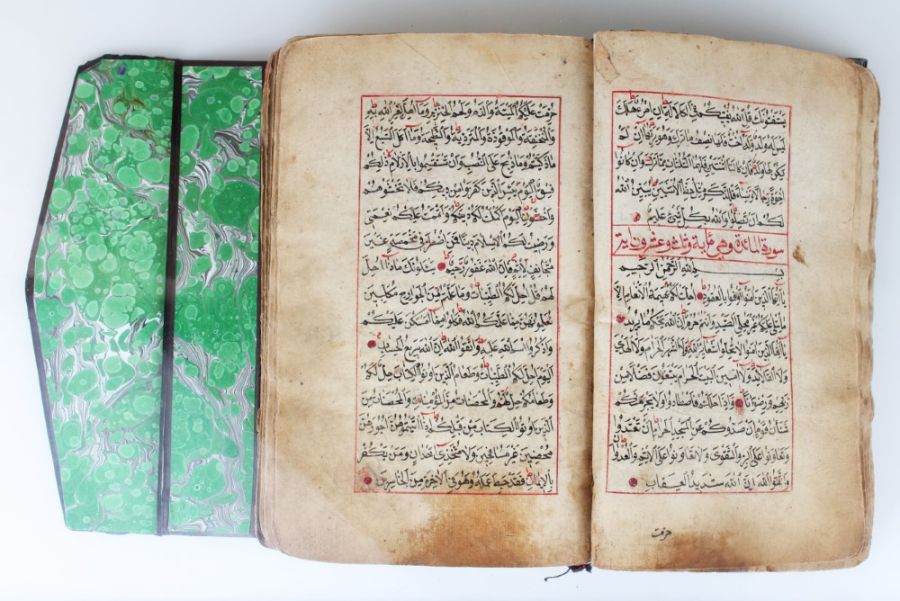 يستفتونك قل الله يفتيكم في الكلالة إن امرؤ هلك
ليس له ولد وله أخت فلها نصف ما ترك وهو يرثها إن لم
يكن لها ولد فإن كانتا اثنتين فلهما الثلثان مما ترك وإن كانوا
إخوة رجالا ونساء فللذكر مثل حظ الأنثيين يبين الله
لكم أن تضلوا والله بكل شيء عليم
سورة المائدة وهي مأية وعشرون اية
بسم الله الرحمن الرحيم
يا أيها الذين آمنوا أوفوا بالعقود أحلت لكم بهيمة الأنعام إلا
ما يتلى عليكم غير محلي الصيد وأنتم حرم إن الله يحكم ما يريد
يا أيها الذين آمنوا لا تحلوا شعائر الله ولا الشهر الحرام ولا الهدي
ولا القلائد ولا آمين البيت الحرام يبتغون فضلا من
ربهم ورضوانا وإذا حللتم فاصطادوا ولا يجرمنكم
شنآن قوم أن صدوكم عن المسجد الحرام أن تعتدوا
وتعاونوا على البر والتقوى ولا تعاونوا على الإثم والعدوان
واتقوا الله إن الله شديد العقاب
حرمت
حرمت عليكم الميتة والدم ولحم الخنزير وما أهل لغير الله به
والمنخنقة والموقوذة والمتردية والنطيحة وما أكل السبع إلا
ما ذكيتم وما ذبح على النصب وأن تستقسموا بالأزلام ذلكم
فسق اليوم يئس الذين كفروا من دينكم فلا تخشوهم
واخشون اليوم أكملت لكم دينكم وأتممت عليكم نعمتي
ورضيت لكم الإسلام دينا فمن اضطر في مخمصة غير
متجانف لإثم فإن الله غفور رحيم يسئلونك ماذا أحل
لهم قل أحل لكم الطيبات وما علمتم من الجوارح مكلبين
تعلمونهن مما علمكم الله فكلوا مما أمسكن عليكم
واذكروا اسم الله عليه واتقوا الله إن الله سريع الحساب
اليوم أحل لكم الطيبات وطعام الذين أوتوا الكتاب حل لكم
وطعامكم حل لهم والمحصنات من المؤمنات والمحصنات من
الذين أوتوا الكتاب من قبلكم إذا آتيتموهن أجورهن
محصنين غير مسافحين ولا متخذي أخدان ومن يكفر
بالإيمان فقد حبط عمله وهو في الآخرة من الخاسرين